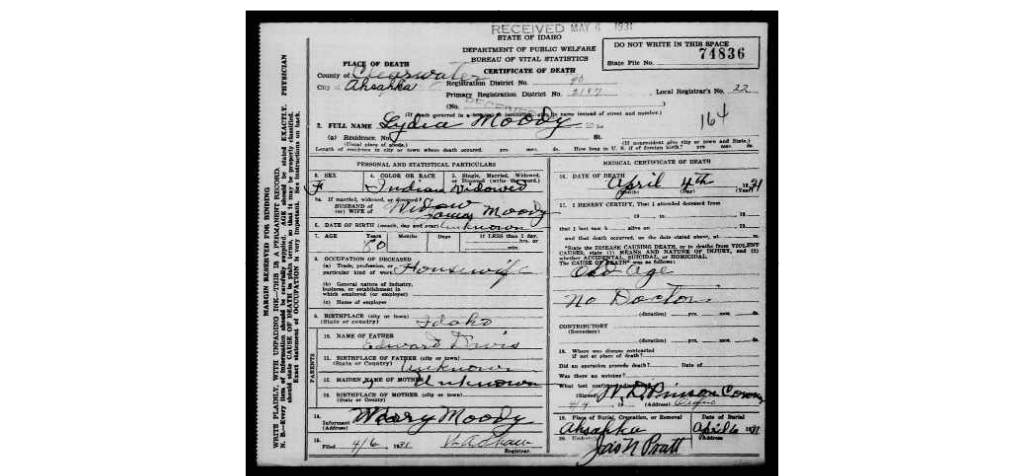 RECEIVED MAY 4 1931
STATE OF IDAHO
DEPARTMENT OF PUBLIC WELFARE
BUREAU OF VITAL STATISTICS
CERTIFICATE OF DEATH
DO NOT WRITE IN THIS SPACE
State File No. 74836
PLACE OF DEATH
County of Clearwater
City of Ahsahka
Registration District No.
Primary Registration District No. 2187
Local Registrar's No. 22
(No.
RECEIVED
(If death occurred in a hospital or institution, give its name instead of street and number.)
164
2. FULL NAME Lydia Moody
(a) Residence No. St.
(Usual place of abode.) (If nonresident give city or town and State.)
Length of residence in city or town where death occurred. yrs. mos. ds. How long in U. S. if of foreign birth? yrs. mos. ds.
PERSONAL AND STATISTICAL PARTICULARS
3. SEX F
4. COLOR OR RACE Indian
5. Single, Married, Widowed, or Divorced (write the word.) Widowed
5a. If married, widowed, or divorced
HUSBAND of
(or) WIFE of Widow Moody
6. DATE OF BIRTH (month, day and year) unknown
7. AGE Years Months Days If LESS than 1 day, hrs. or min.
80
8. OCCUPATION OF DECEASED
(a) Trade, profession, or
particular kind of work Housewife
(b) General nature of industry,
business, or establishment in
which employed (or employer)
(c) Name of employer
9. BIRTHPLACE (city or town)
(State or country) Idaho
PARENTS
10. NAME OF FATHER Edward Davis
11. BIRTHPLACE OF FATHER (city or town)
(State or Country) Unknown
12. MAIDEN NAME OF MOTHER Unknown
13. BIRTHPLACE OF MOTHER (city or town)
(State or country)
14. Informant Mary Moody
(Address)
15. Filed 4/6 1931
Registrar
MEDICAL CERTIFICATE OF DEATH
16. DATE OF DEATH April 4th 1931
(Month) (Day) (Year)
17. I HEREBY CERTIFY, That I attended deceased from
19 to 19
that I last saw h alive on 19
and that death occurred, on the date stated above, at m.
*State the DISEASE CAUSING DEATH, or in deaths from VIOLENT
CAUSES, state (1) MEANS AND NATURE OF INJURY, and (2)
whether ACCIDENTAL, SUICIDAL, or HOMICIDAL.
The CAUSE OF DEATH* was as follows:
Old Age
No Doctor
(duration) yrs. mos. ds.
CONTRIBUTORY
(Secondary)
(duration) yrs. mos. ds.
18. Where was disease contracted
if not at place of death?
Did an operation precede death? Date of
Was there an autopsy?
What test confirmed diagnosis?
(Signed)
(Address)
19. Place of Burial, Cremation, or Removal Date of Burial
Ahsahka April 6 1931
20. Undertaker Address
Jas N Pratt
MARGIN RESERVED FOR BINDING
WRITE PLAINLY, WITH UNFADING INK—THIS IS A PERMANENT RECORD.
N. B.—Every item of information should be carefully supplied. AGE should be stated EXACTLY. PHYSICIAN
should state CAUSE OF DEATH in plain terms, so that it may be properly classified.
Exact statement of OCCUPATION is very important. See instructions on back.